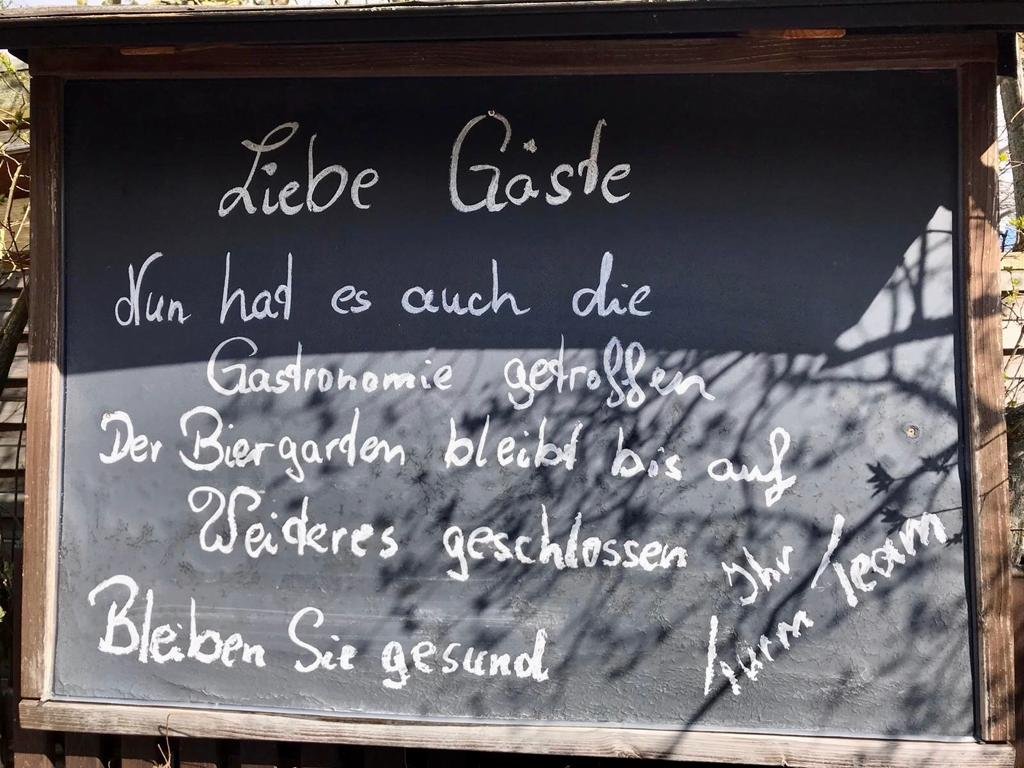 Liebe Gäste
Nun hat es auch die
Gastronomie getroffen
Der Biergarten bleibt bis auf
Weiteres geschlossen
Bleiben Sie gesund
Ihr
Team